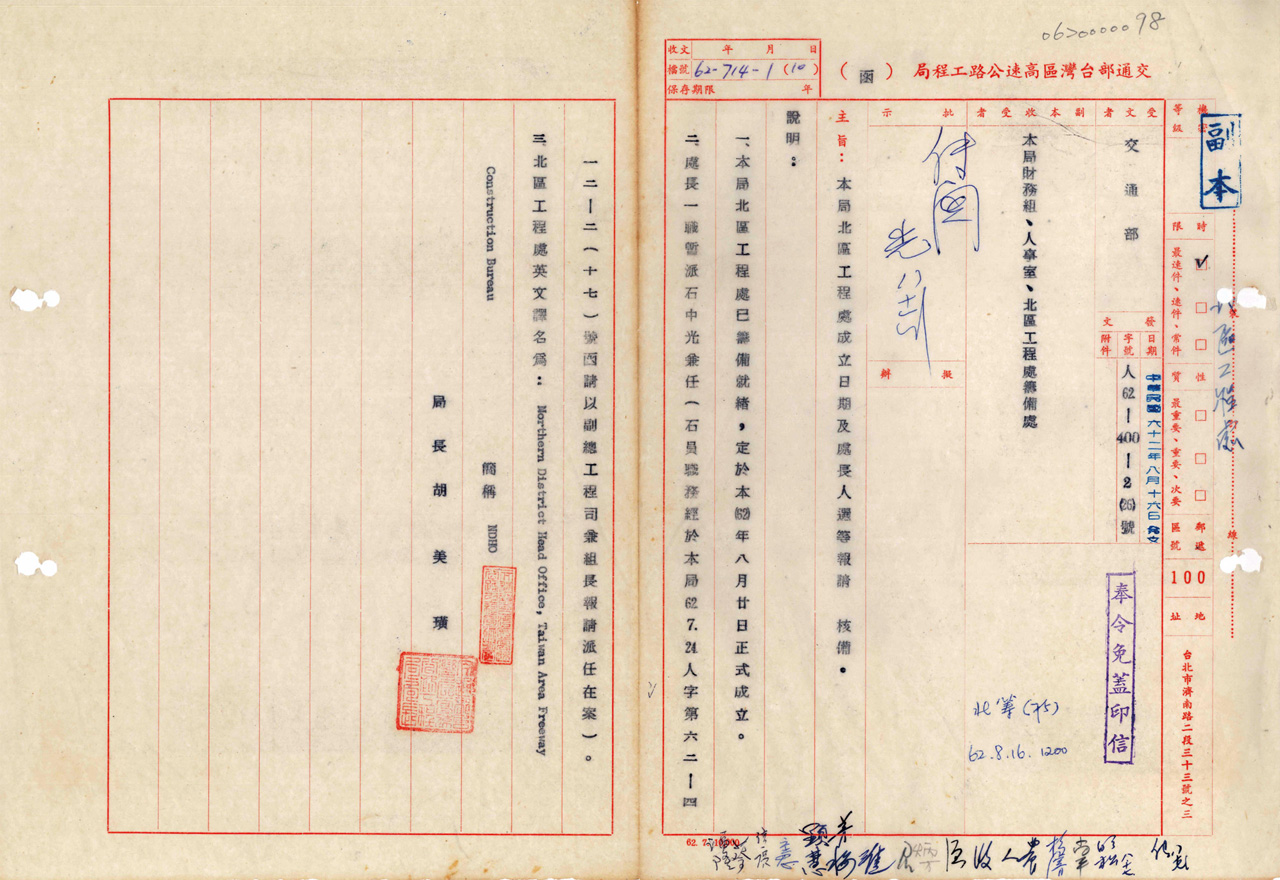 0620000098
交通部台灣區高速公路工程局
(函)
收文 年 月 日
檔號 62-714-1(10)
保存期限 年
副本
等級
時限 最速件、速件、常件
性質 最重要、重要、次要
郵遞區號 100
地址 台北市濟南路二段三十三號之三
受文者 交通部
副本收受者 本局財務組、人事室、北區工程處籌備處
發文
日期 中華民國六十二年八月十六日發文
字號 人62—400—2(26)號
附件
奉令免蓋印信
批示
擬辦
62.8.16.1200
主旨:本局北區工程處成立日期及處長人選等報請 核備。
說明:
一、本局北區工程處已籌備就緒,定於本(62)年八月廿日正式成立。
二、處長一職暫派石中光兼任(石員職務經於本局62.7.24人字第六二—四
一二—二(十七)號函請以副總工程司兼組長報請派任在案)。
三、北區工程處英文譯名為:Northern District Head Office, Taiwan Area Freeway
Construction Bureau
簡稱 NDHO
局長胡美璜
裝
線